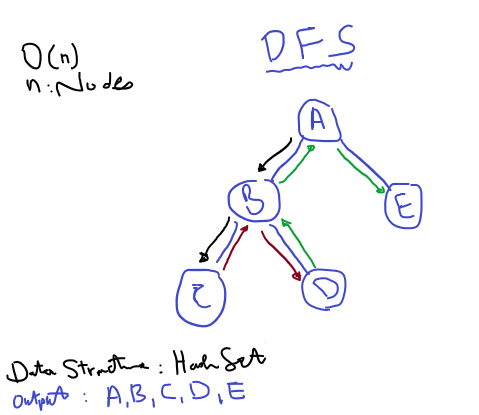 DFS
O(n)
n: Nodes
A
B
E
C
D
Data Structure: HashSet
Output: A, B, C, D, E